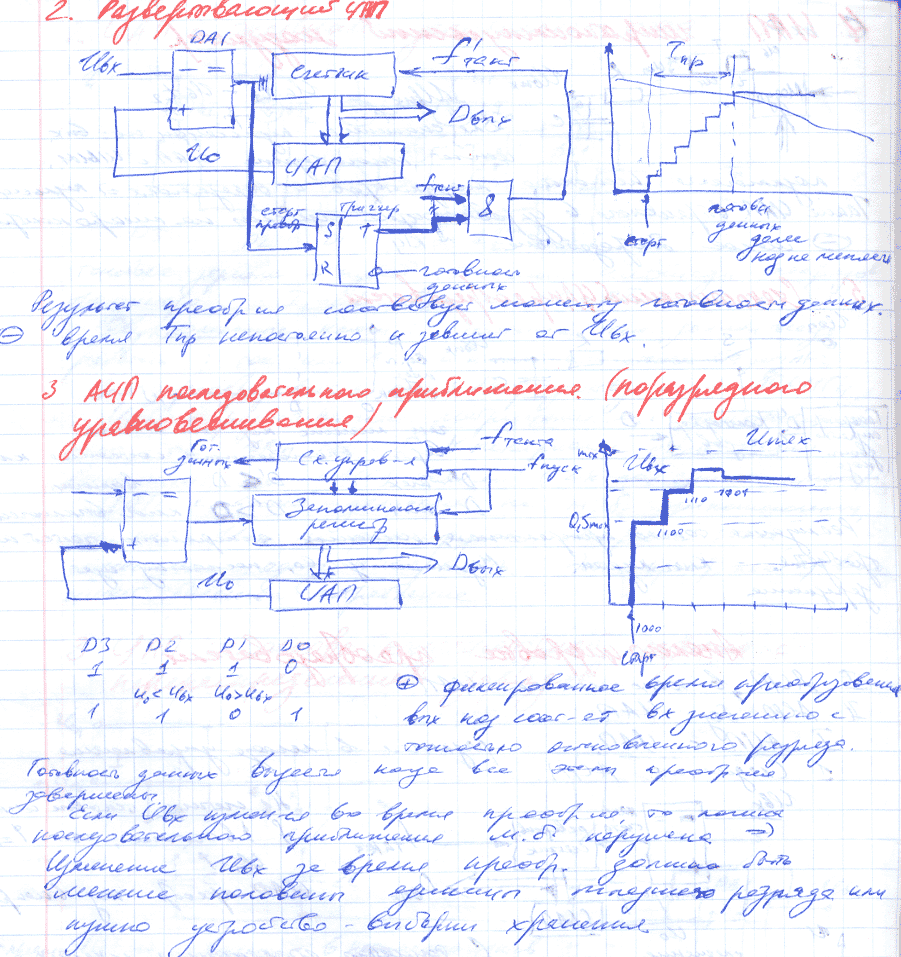 2. Развертывающий ЦАП
DA1
Uвх
- = =
+
Счетчик
f'такт
Dвых
U0
ЦАП
старт
преобр
триггер
S
T
R
fтакт
&
готовность
данных
Tпр
старт
готовн
данных
далее
код не меняется
Результат преобр-ия соответствует моменту готовности данных.
⊖ время Tпр непостоянно и зависит от Uвх.
3 АЦП последовательного приближения. (поразрядного
уравновешивания)
Гот.
данных
Сх. управ-я
fтакта
fпуск
- = =
+
Запоминающ
регистр
Dвых
U0
ЦАП
max
Uвх
Umax
0,5max
1100
1110
1101
1000
старт
D3 D2 D1 D0
1 1 1 0
U0<Uвх U0>Uвх
1 1 0 1
⊕ фиксированное время преобразования
вых код соот-ет вх значению с
точностью до
разряда.
Готовность данных
когда все этапы преобр-ия
завершены
Если Uвх измен-ся во время преобр-ия, то логика
последовательного приближения м.б. нарушена ⇒
Изменение Uвх за время преобр. должно быть
меньше половины единицы младшего разряда или
нужно устройство - выборки хранения.